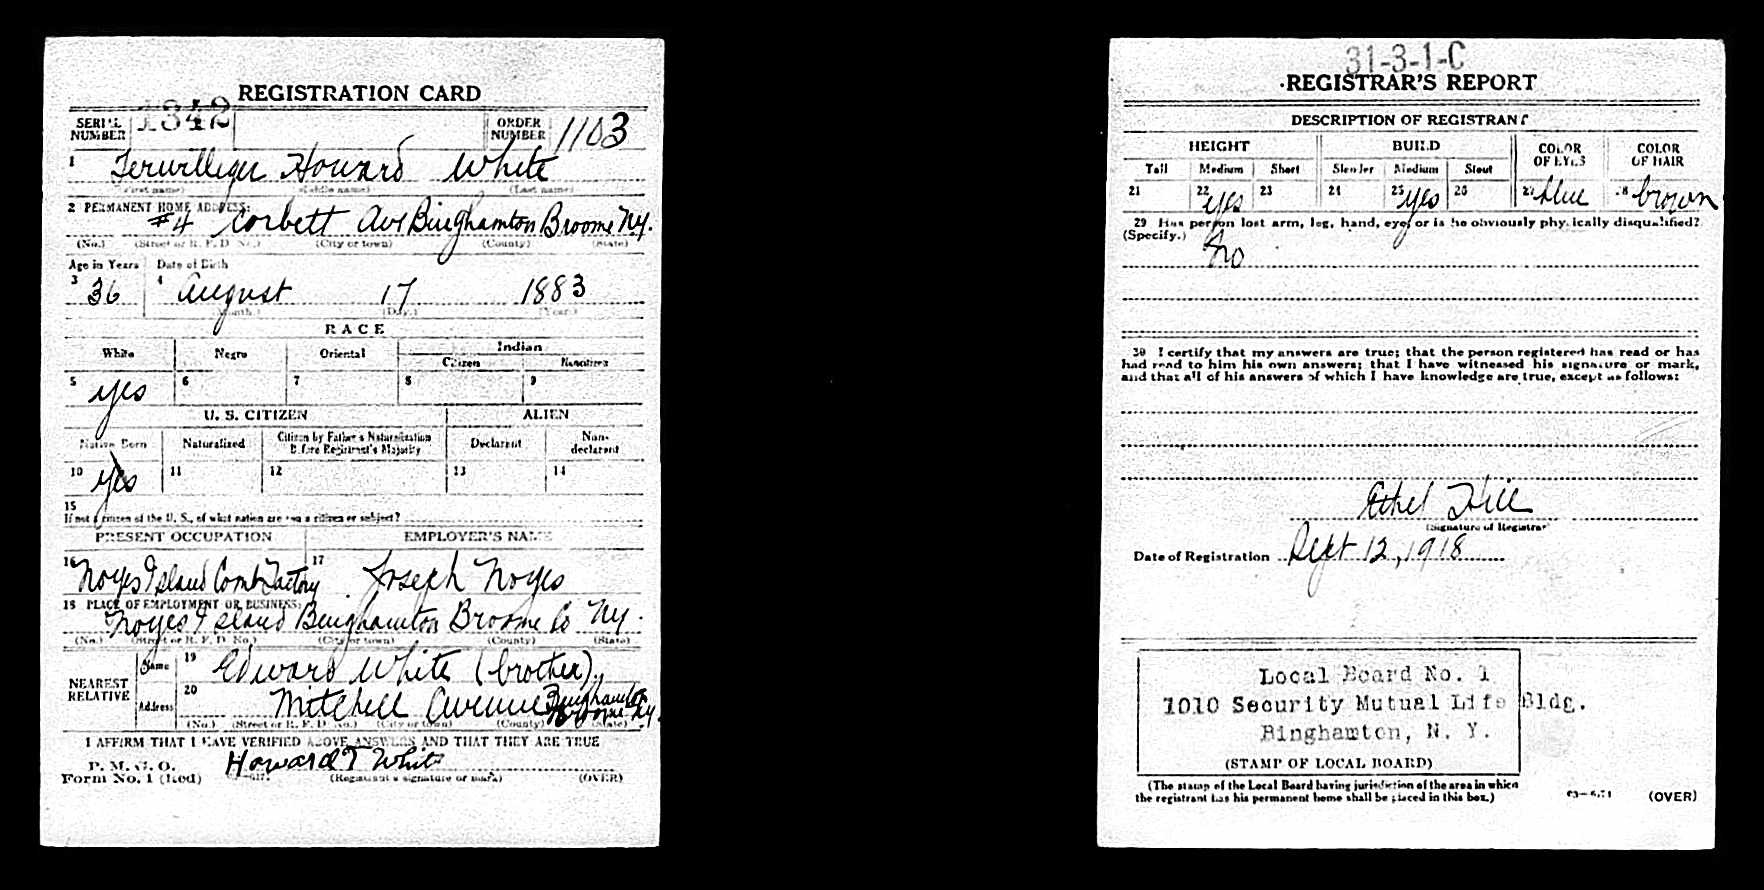 REGISTRATION CARD
SERIAL NUMBER 1342 ORDER NUMBER 1103
1 Terwilliger Howard White
(First name) (Middle name) (Last name)
2 PERMANENT HOME ADDRESS:
#4 Corbett Ave Binghamton Broome N.Y.
(No.) (Street or R. F. D. No.) (City or town) (County) (State)
Age in Years Date of Birth
3 36 4 August 17 1883
(Month.) (Day.) (Year.)
RACE
White Negro Oriental Indian
Citizen Noncitizen
5 yes 6 7 8 9
U. S. CITIZEN ALIEN
Native Born Naturalized Citizen by Father's Naturalization Before Registrant's Majority Declarant Non-declarant
10 yes 11 12 13 14
15
If not a citizen of the U. S., of what nation are you a citizen or subject?
PRESENT OCCUPATION EMPLOYER'S NAME
16 Noyes Island Comb Factory 17 Joseph Noyes
18 PLACE OF EMPLOYMENT OR BUSINESS:
Noyes Island Binghamton Broome Co NY.
(No.) (Street or R. F. D. No.) (City or town) (County) (State)
NEAREST RELATIVE Name 19 Edward White (brother)
Address 20 Mitchell Avenue Binghamton Broome N.Y.
(No.) (Street or R. F. D. No.) (City or town) (County) (State)
I AFFIRM THAT I HAVE VERIFIED ABOVE ANSWERS AND THAT THEY ARE TRUE
P. M. G. O.
Form No. 1 (Red) Howard T White
(Registrant's signature or mark) (OVER)
31-3-1-C
REGISTRAR'S REPORT
DESCRIPTION OF REGISTRANT
HEIGHT BUILD COLOR OF EYES COLOR OF HAIR
Tall Medium Short Slender Medium Stout
21 22 yes 23 24 25 yes 26 27 blue 28 brown
29 Has person lost arm, leg, hand, eye, or is he obviously physically disqualified?
(Specify.) no
30 I certify that my answers are true; that the person registered has read or has
had read to him his own answers; that I have witnessed his signature or mark,
and that all of his answers of which I have knowledge are true, except as follows:
Ethel Hill
(Signature of Registrar)
Date of Registration Sept 12, 1918
Local Board No. 1
1010 Security Mutual Life Bldg.
Binghamton, N. Y.
(STAMP OF LOCAL BOARD)
(The stamp of the Local Board having jurisdiction of the area in which
the registrant has his permanent home shall be placed in this box.)
(OVER)